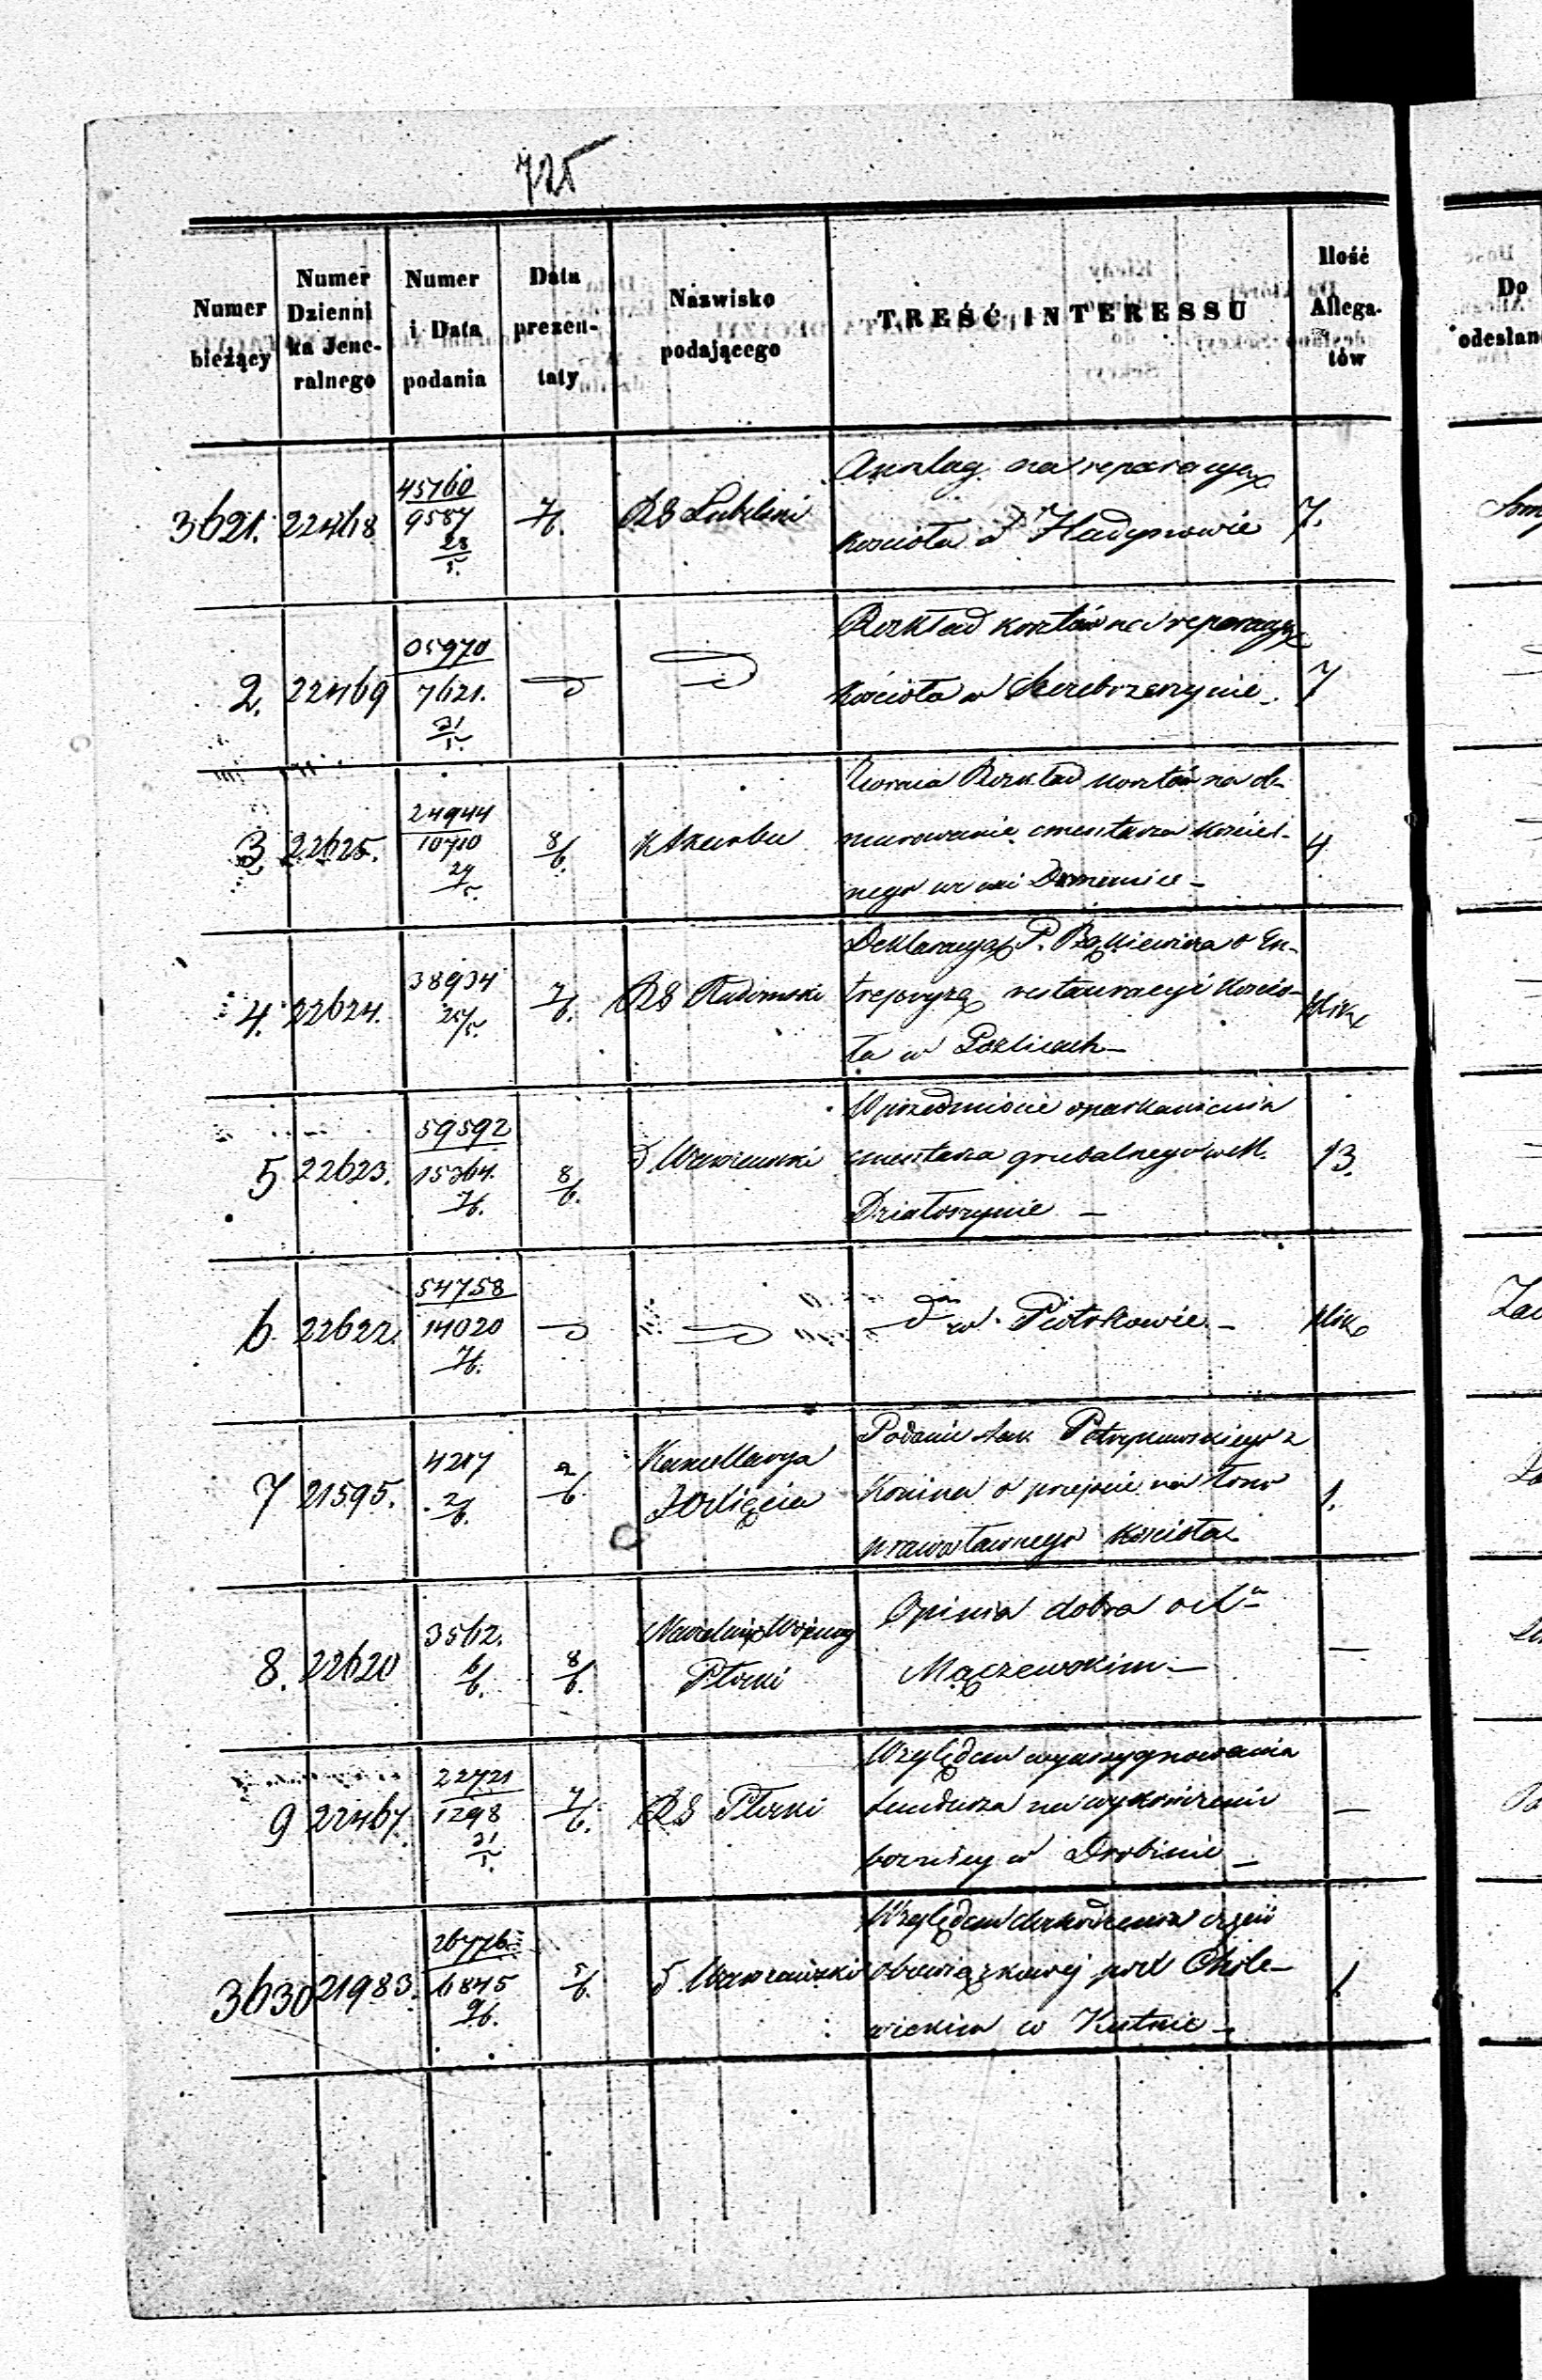 725
Numer bieżący
Numer Dzienni ka Jene- ralnego
Numer i Data podania
Data prezen- taty
Nazwisko podającego
TREŚĆ INTERESSU
Ilość Allega- tów
Do
odesłan
3621. 22468 45760 9587 28/5. 7/6. RG Lubelski
na reparacyę
kościoła w Hadynowie 7.
2. 22469 05970 7621. 31/5.
Rozkład kosztów na reparacyę
kościoła w Szczebrzeszynie 7
3 22625. 24944 10710 29/5. 8/6. K Skarbu
Zwraca Rozkład kosztów na ob-
murowanie cmentarza kościel-
nego we wsi 4
4. 22624. 38934 25/5. 7/6. RG Radomski
Deklaracya P. Bąkiewicza o En-
trepryzę restauracyi kościo-
ła w plik
5 22623. 59592 15364. 7/6. 8/6. d Warszawski
W przedmiocie oparkanienia
cmentarza grzebalnego w M.
Działoszynie 13.
6. 22622. 54758 14020 7/6.
w Piotrkowie plik
7 21595. 4217 2/6. 2/6. Kancellarya
JO Xięcia
Podanie z
Konina o przejście na łono
prawosławnego kościoła 1.
8. 22620 3562. 6/6. 8/6. Naczelnik Wojenny
Płocki
Opinia dobra o
Mączewskim
9 22467. 22721 1298 31/5. 7/6. RG Płocki
Względem wyassygnowania
funduszu na wykończenie
bożnicy w Drobinie
3630 21983. 26776 6875 2/6. 5/6. d. Warszawski
Względem
obowiązkowej pod Chole-
wickim w Kutnie 1